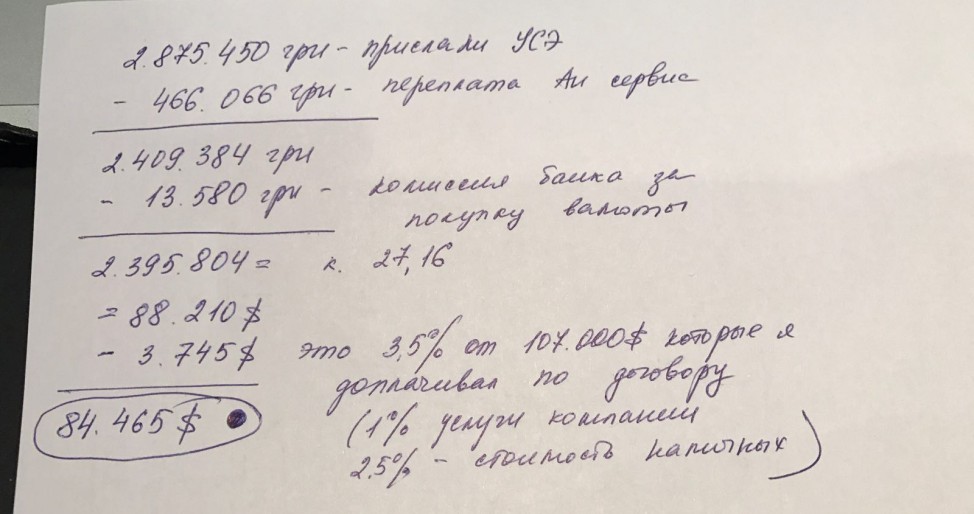 2.875.450 грн - прислали УСЭ
- 466.066 грн - переплата Ан сервис
2.409.384 грн
- 13.580 грн - комиссия банка за
покупку валюты
2.395.804 = к. 27,16
= 88.210 $
- 3.745 $ это 3,5% от 107.000$ которые я
доплачивал по договору
84.465 $ (1% услуги компании
2,5% - стоимость наличных)